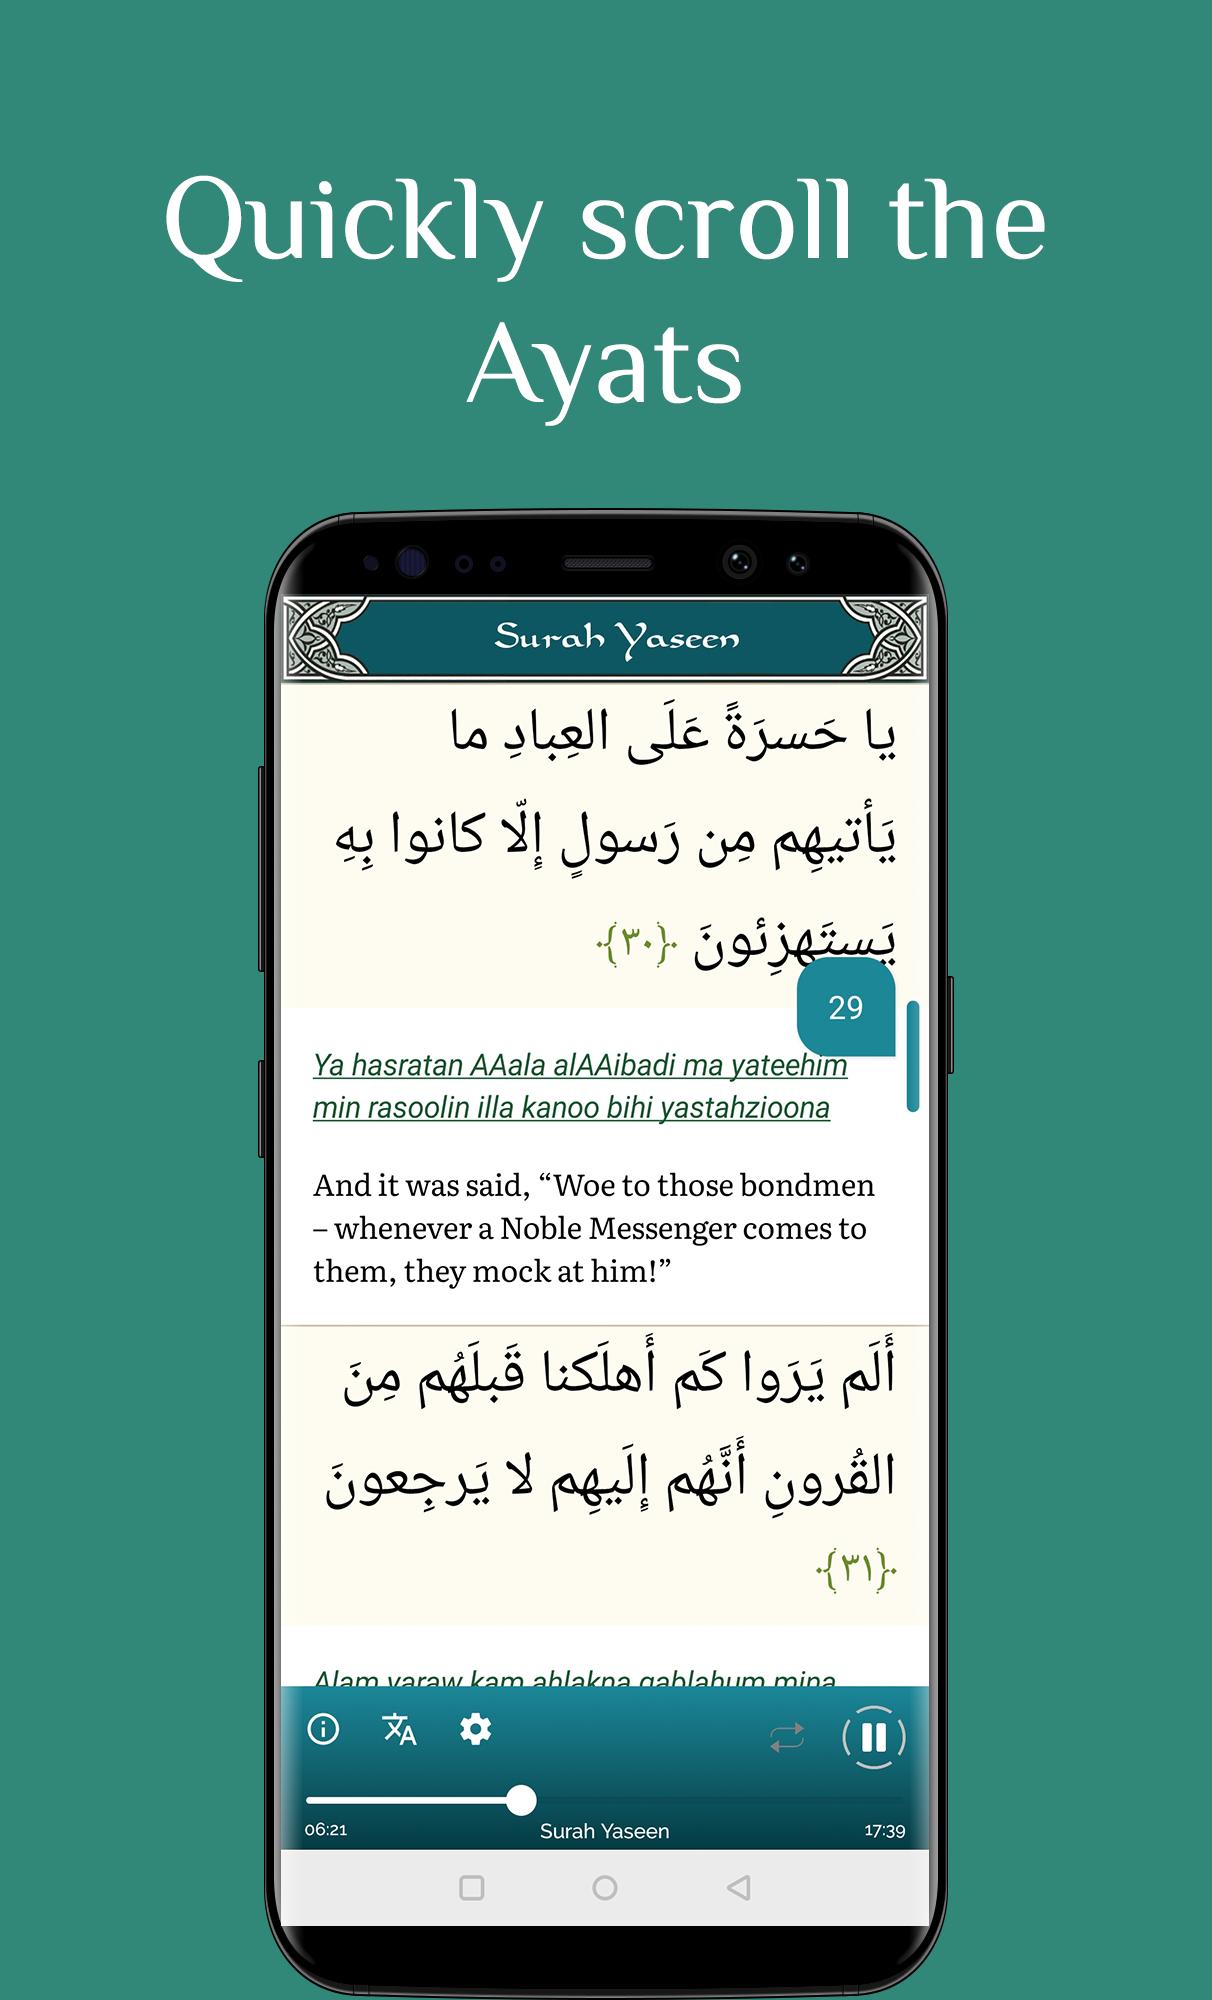 Quickly scroll the
Ayats
Surah Yaseen
يا حَسرَةً عَلَى العِبادِ ما
يَأتيهِم مِن رَسولٍ إِلّا كانوا بِهِ
يَستَهزِئونَ ﴿٣٠﴾
29
Ya hasratan AAala alAAibadi ma yateehim
min rasoolin illa kanoo bihi yastahzioona
And it was said, “Woe to those bondmen
– whenever a Noble Messenger comes to
them, they mock at him!”
أَلَم يَرَوا كَم أَهلَكنا قَبلَهُم مِنَ
القُرونِ أَنَّهُم إِلَيهِم لا يَرجِعونَ
﴿٣١﴾
Alam yaraw kam ahlakna qablahum mina
06:21
Surah Yaseen
17:39